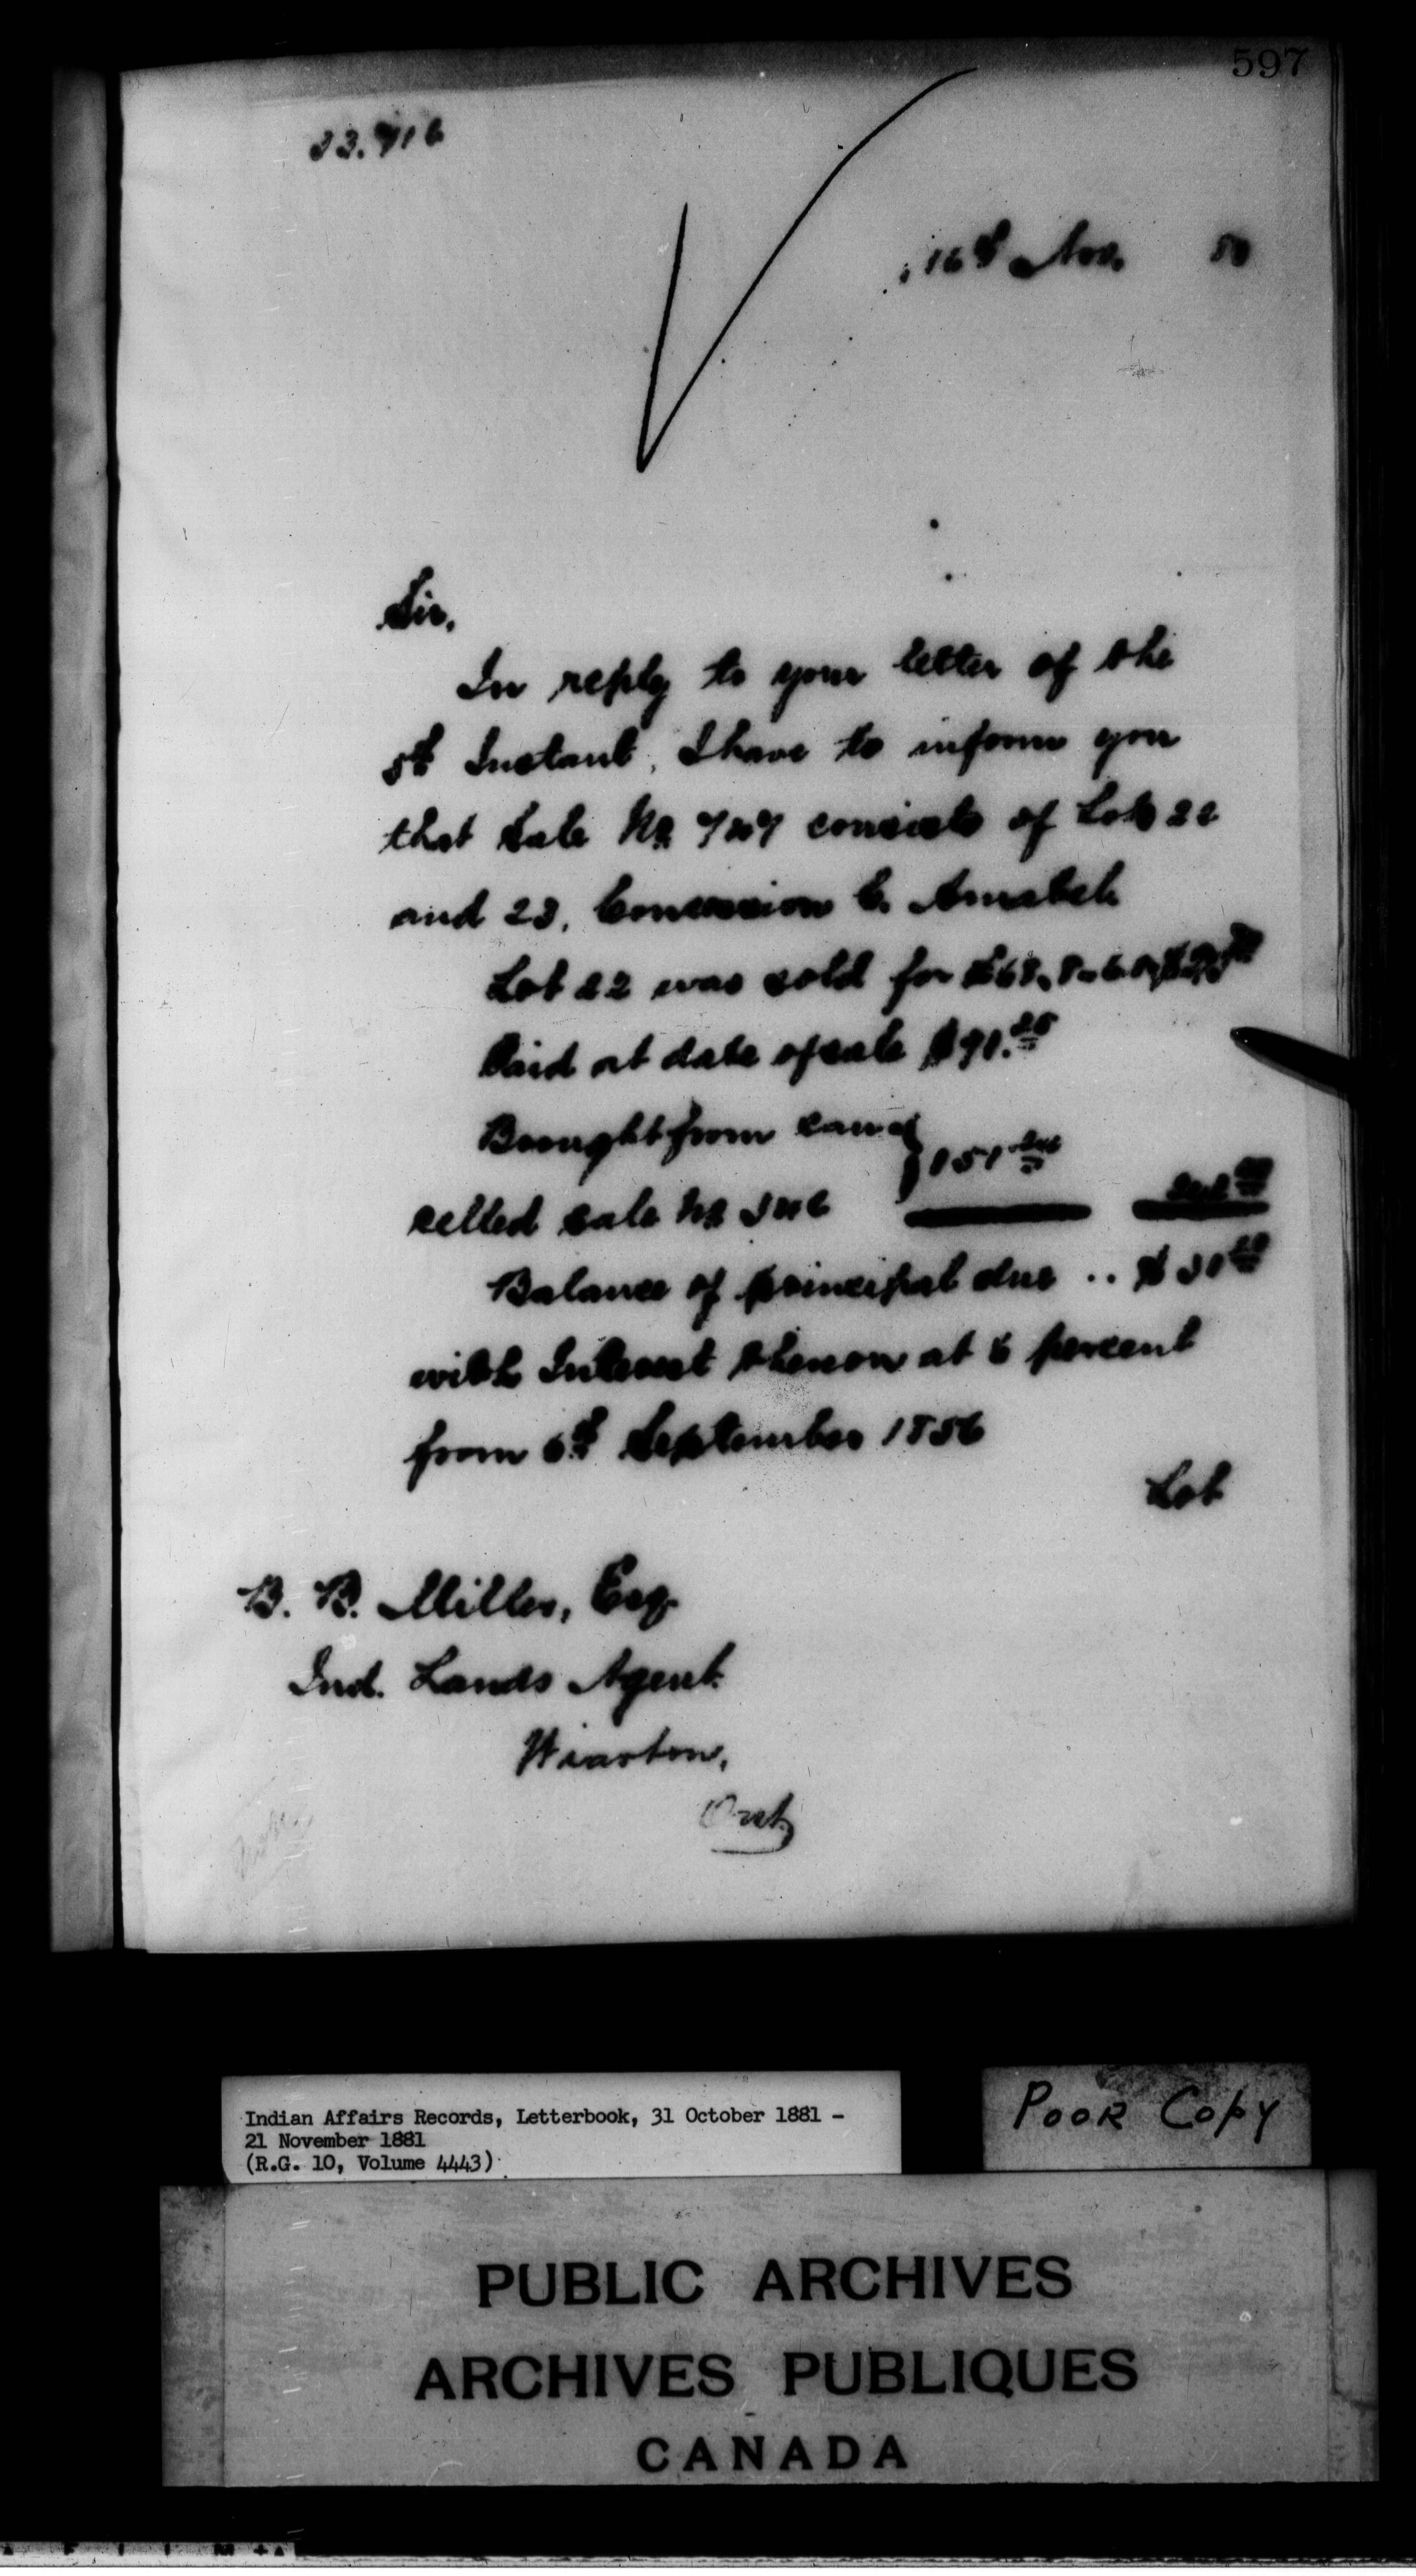 597
16th Nov.
Sir,
In reply to your letter of the
5th Instant, I have to inform you
that Sale No consists of Lots 22
and 23, Concession 6. Amabel
Lot 22 was sold for
Paid at date of sale
Brought from can
celled sale No
Balance of principal due ..
with Interest thereon at 6 percent
from 6th September 1856
Lot
B. B. Miller, Esq.
Ind. Lands Agent.
Wiarton,
Ont.
Indian Affairs Records, Letterbook, 31 October 1881 -
21 November 1881
(R.G. 10, Volume 4443)
Poor Copy
PUBLIC ARCHIVES
ARCHIVES PUBLIQUES
CANADA